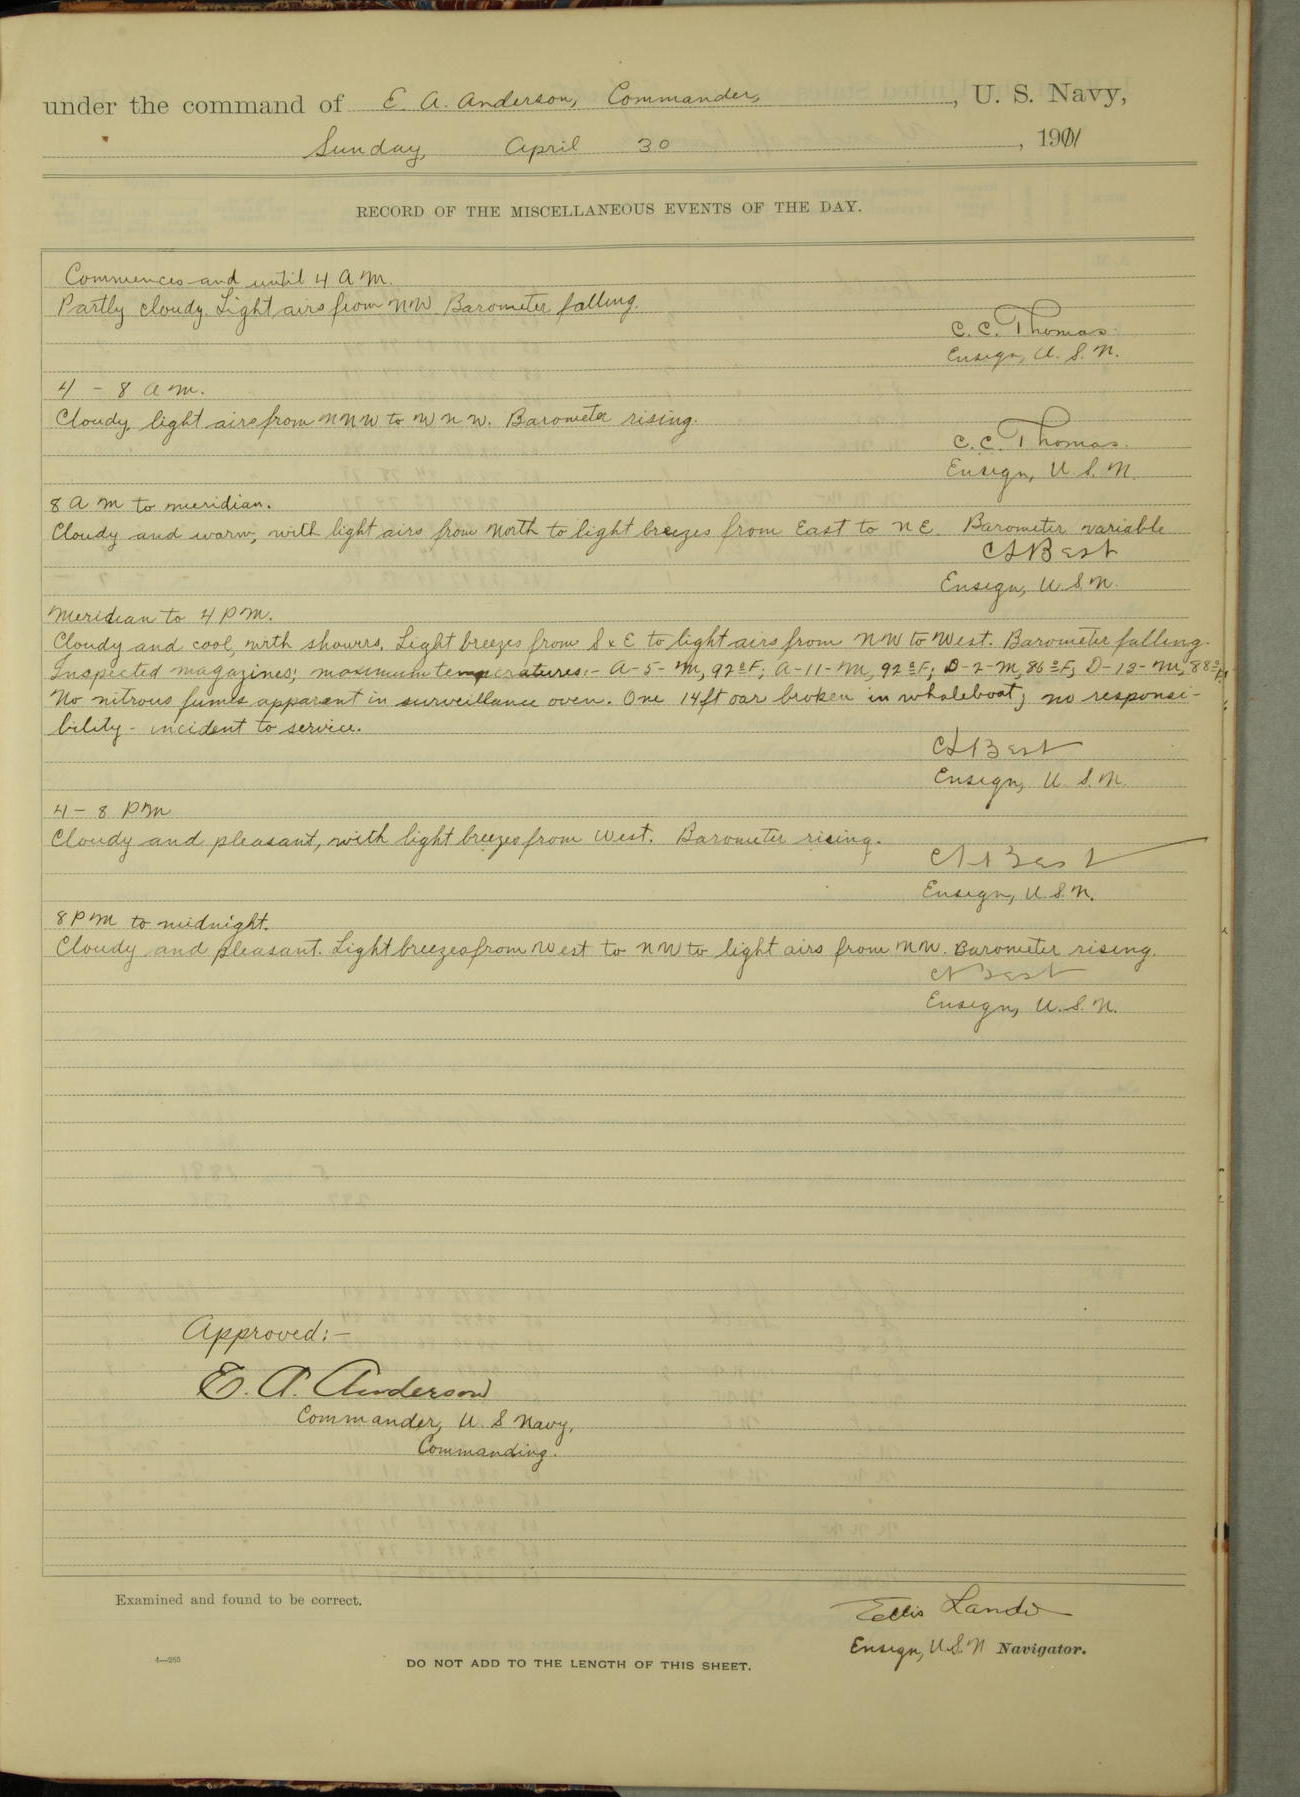 under the command of E. A. Anderson, Commander, , U. S. Navy,
Sunday, April 30 , 1911
RECORD OF THE MISCELLANEOUS EVENTS OF THE DAY.
Commences and until 4 A M.
Partly cloudy. Light airs from NW. Barometer falling.
C. C. Thomas
Ensign, U. S. N.
4 - 8 A M.
Cloudy, light airs from NNW to WNW. Barometer rising.
C. C. Thomas
Ensign, U. S. N.
8 A M to meridian.
Cloudy and warm, with light airs from North to light breezes from East to NE. Barometer variable
C L Best
Ensign, U. S. N.
Meridian to 4 P M.
Cloudy and cool, with showers. Light breezes from S x E to light airs from NW to West. Barometer falling.
Inspected magazines; maximum temperatures:- A-5-M, 92°F; A-11-M, 92°F; D-2-M, 86°F; D-13-M, 88°F.
No nitrous fumes apparent in surveillance oven. One 14 ft oar broken in whaleboat; no responsi-
bility - incident to service.
C L Best
Ensign, U. S. N.
4 - 8 P M
Cloudy and pleasant, with light breezes from West. Barometer rising.
C L Best
Ensign, U. S. N.
8 P M to midnight.
Cloudy and pleasant. Light breezes from West to NW to light airs from NW. Barometer rising.
C L Best
Ensign, U. S. N.
Approved:-
E. A. Anderson
Commander, U S Navy,
Commanding.
Examined and found to be correct.
Ellis Lando
Ensign, U. S. N Navigator.
4—265
DO NOT ADD TO THE LENGTH OF THIS SHEET.